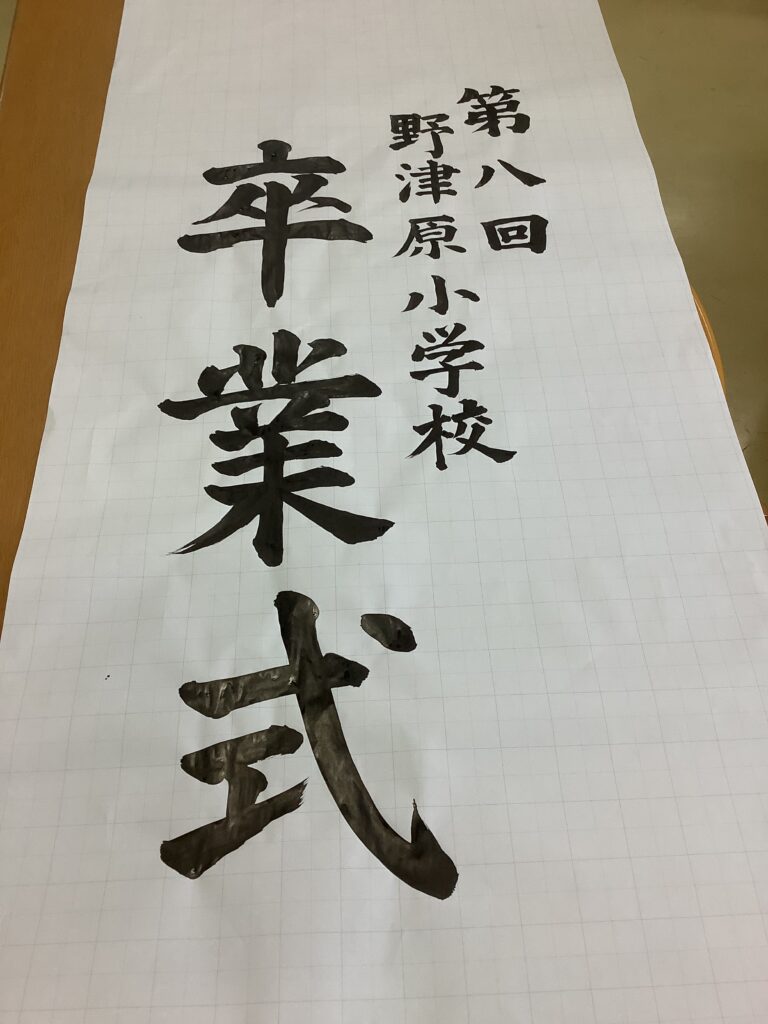 第八回
野津原小学校
卒業式